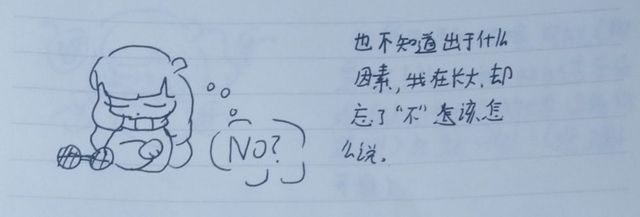 也不知道出于什么
因素,我在长大,却
忘了“不”应该怎
么说。
NO?